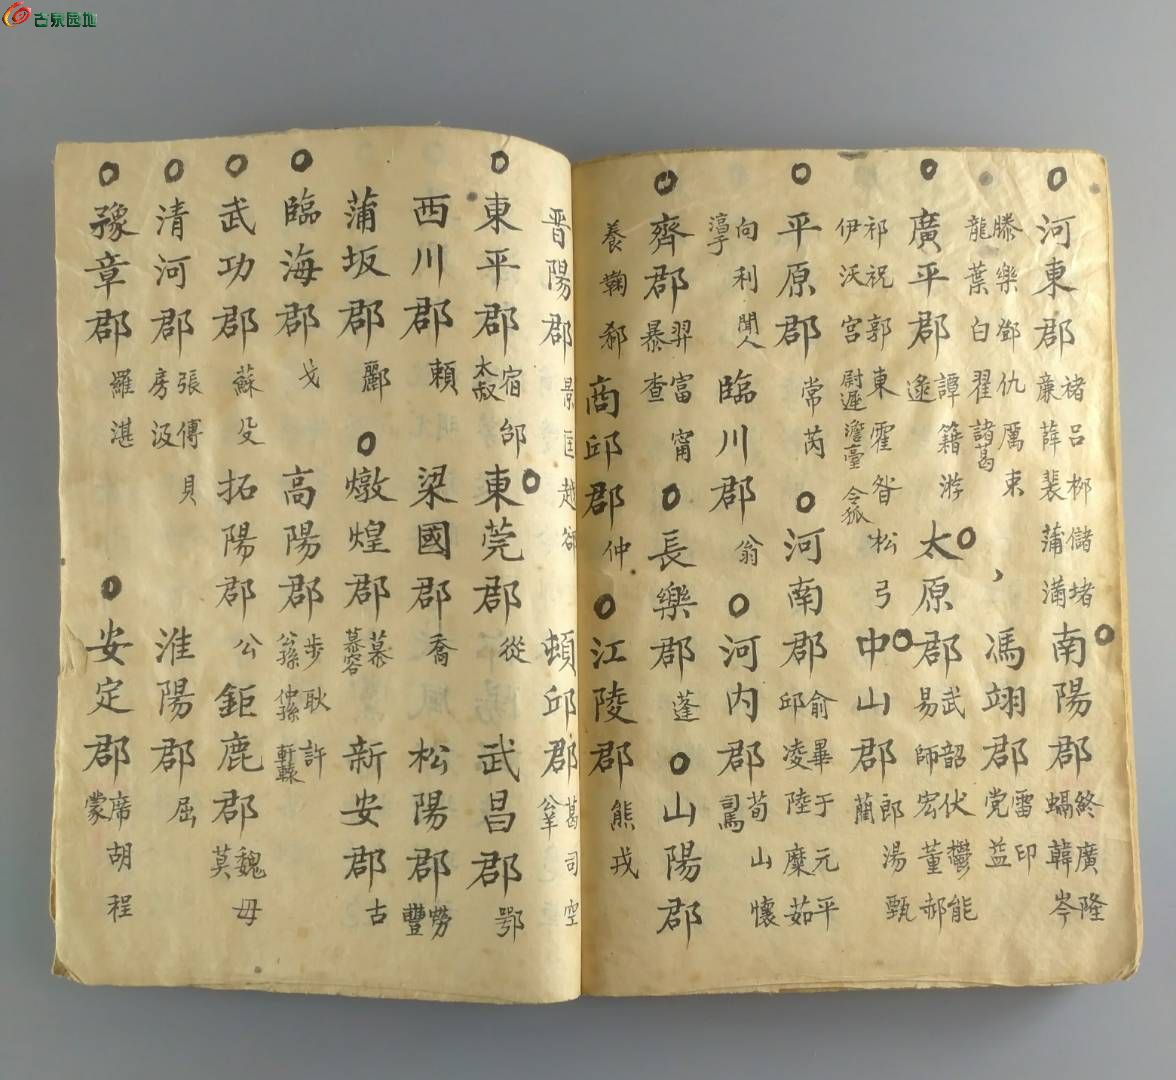 古泉园地
河東郡 褚呂柳儲堵 廉薛裴蒲滿 南陽郡 終廣隆 韓岑
滕樂鄧仇厲束 龍葉白翟諸葛 馮翊郡 雷印 党益
廣平郡 譚籍游 逯 太原郡 武韶伏鬱能 易師宏董郝
祁祝郭東霍昝松弓 伊沃宮尉遲澹臺令狐 中山郡 郎湯甄 藺
平原郡 常芮 河南郡 俞畢于元平 邱凌陸糜茹
向利聞人 淳于 臨川郡 翁 河內郡 荀山懷 司馬
齊郡 羿富甯 暴查 長樂郡 蓬 山陽郡
養鞠郗 商邱郡 仲 江陵郡 熊戎
晋陽郡 景匡越郤 頓邱郡 葛司空 公羊
東平郡 宿邰 太叔 東莞郡 從 武昌郡 鄂
西川郡 賴 梁國郡 喬 松陽郡 勞 豐
蒲坂郡 酈 燉煌郡 慕 慕容 新安郡 古
臨海郡 戈 高陽郡 步耿許 公孫仲孫軒轅
武功郡 蘇殳 拓陽郡 公 鉅鹿郡 魏毋 莫
清河郡 張傅貝 房汲 淮陽郡 屈
豫章郡 羅湛 安定郡 席胡程 蒙